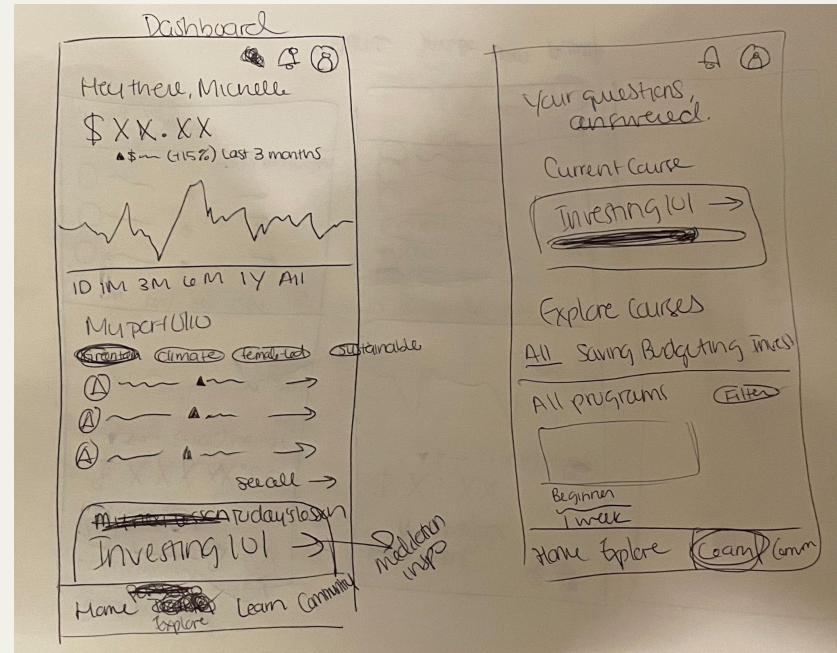 Dashboard
Hey there, Michelle
$XX.XX
▲$~~ (+15%) Last 3 months
1D 1M 3M 6M 1Y All
My portfolio
Climate female-led Sustainable
A
A
A
see all →
Today's lesson
Investing 101 →
inspo
Home Explore Learn Community
Your questions,
answered.
Current Course
Investing 101 →
Explore Courses
All Saving Budgeting Invest
All programs Filter
Beginner
1 week
Home Explore Learn Comm